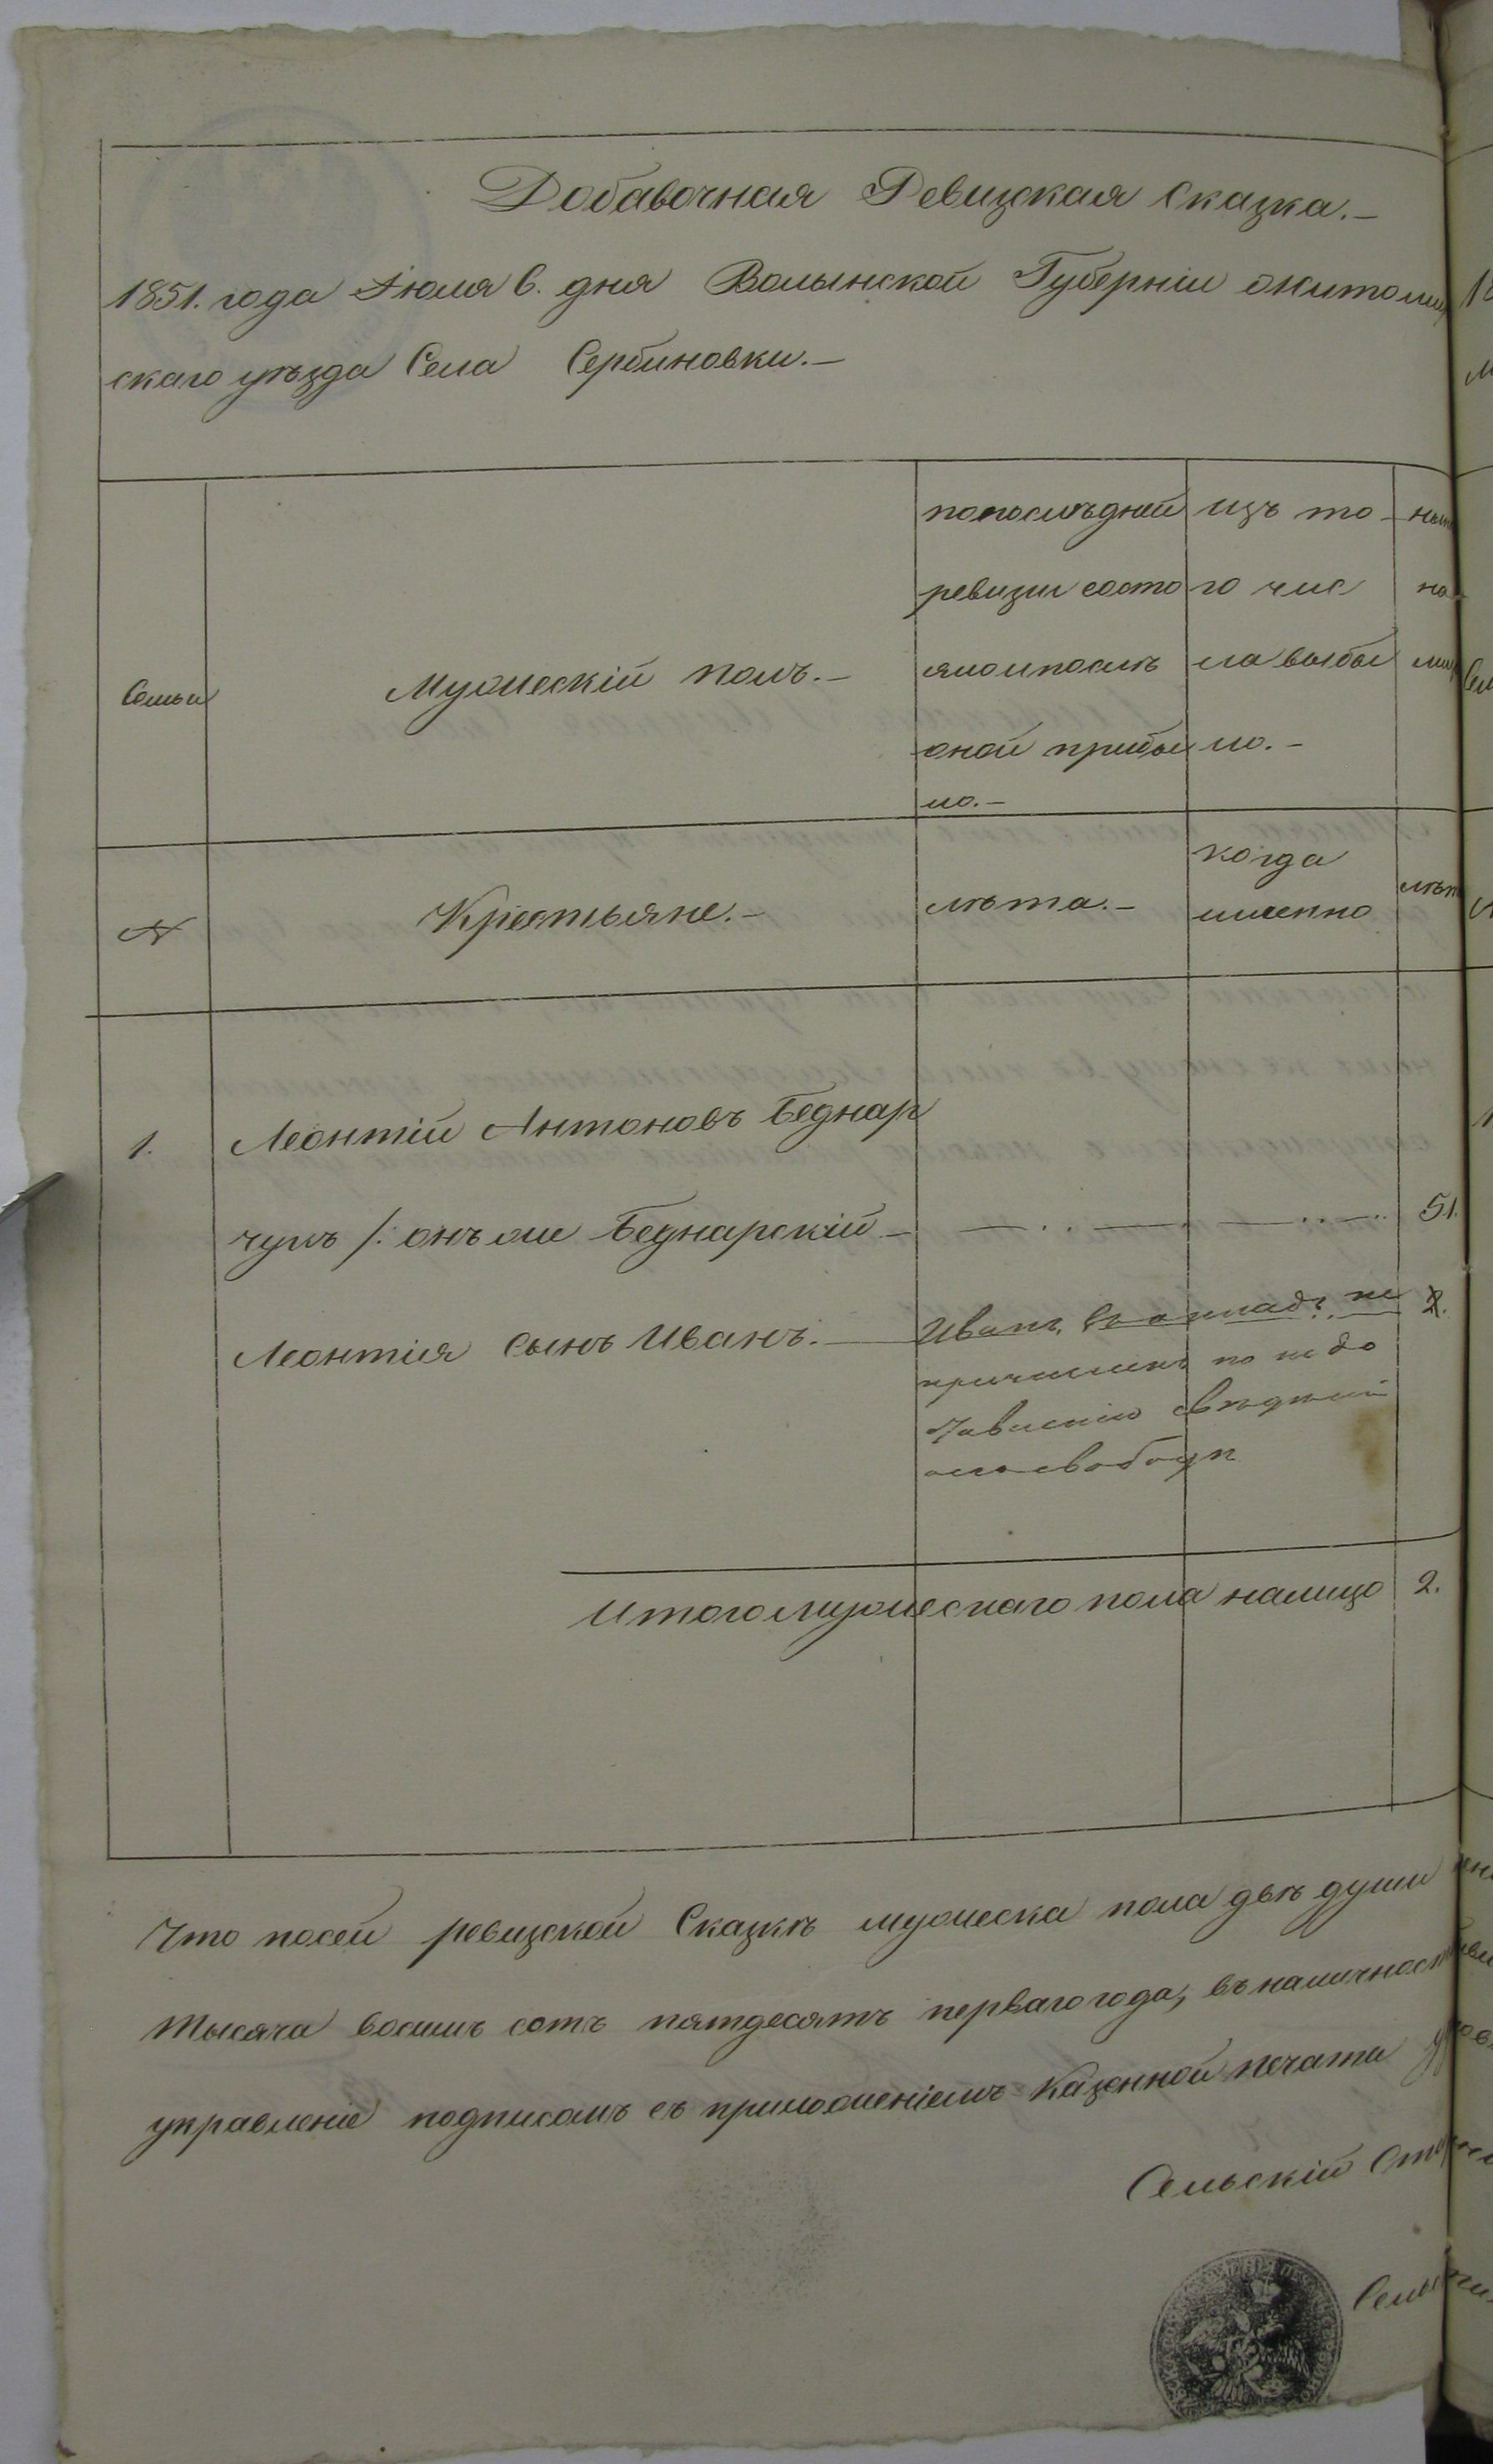 Добавочная Ревизкая Сказка.-
1851. года Іюля 6. дня Волынской Губерніи Житомир
скаго уѣзда Села Сербиновки.-
Семьи
Мужескій полъ.-
попослѣдней
ревизіи состо
ялоипослѣ
оной прибы
ло.-
изъ то-
го чис
ла выбы
ло.-
№
Крестьяне.-
лѣта.-
когда
именно
лѣт
1.
Леонтій Антоновъ Беднар
чукъ /: онъ же Беднарскій - 51.
Леонтія сынъ Иванъ. - 2.
Иванъ въ окладъ не
причисленъ по не до
ставленію свѣдѣній
о его свободѣ
Итого мужескаго пола налицо 2.
Что посей ревизской Сказкѣ мужеска пола двѣ души
тысяча восемь сотъ пятдесятъ перваго года, въ наличност
управленіе подписомъ съ приложеніемъ казенной печати
Сельскій